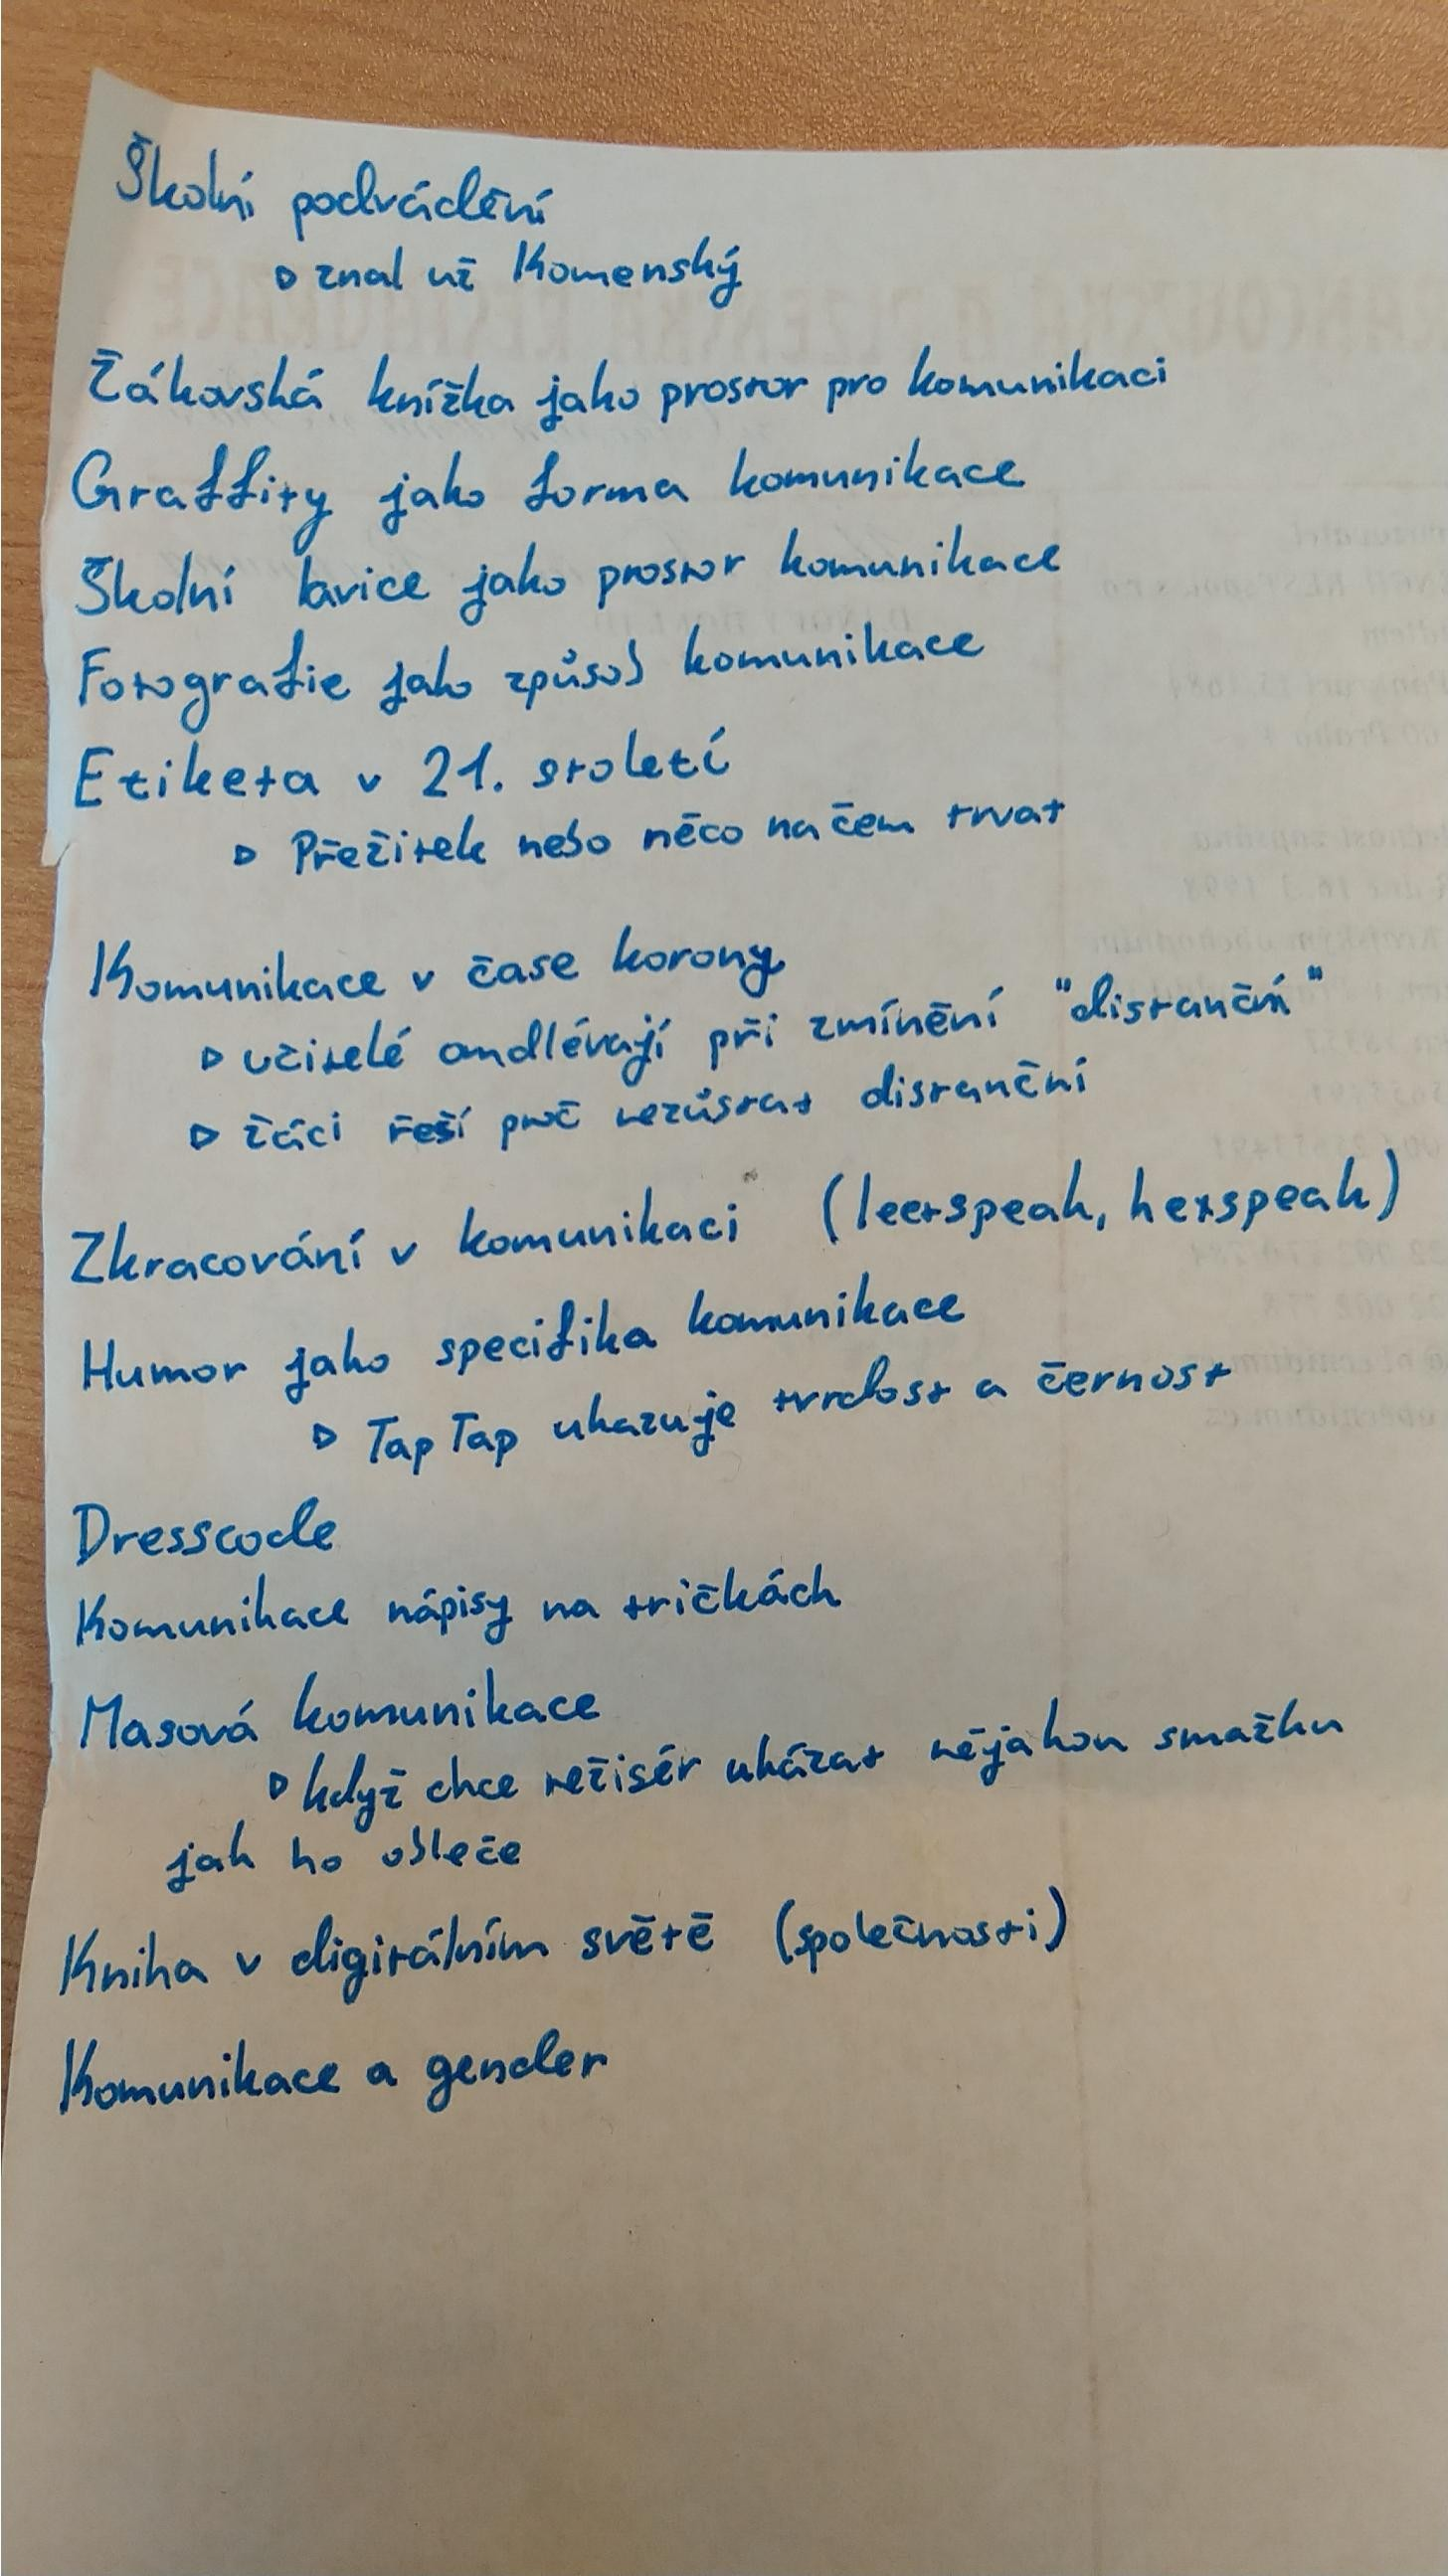 Školní podvádění
▷ znal už Komenský
Žákovská knížka jako prostor pro komunikaci
Graffity jako forma komunikace
Školní lavice jako prostor komunikace
Fotografie jako způsob komunikace
Etiketa v 21. století
▷ Přežitek nebo něco na čem trvat
Komunikace v čase korony
▷ učitelé omdlévají při zmínění "distanční"
▷ žáci řeší proč nezůstat distanční
Zkracování v komunikaci (leetspeak, hexspeak)
Humor jako specifika komunikace
▷ Tap Tap ukazuje tvrdost a černost
Dresscode
Komunikace nápisy na tričkách
Masová komunikace
▷ když chce režisér ukázat nějakou smažku
jak ho obleče
Kniha v digitálním světě (společnosti)
Komunikace a gender